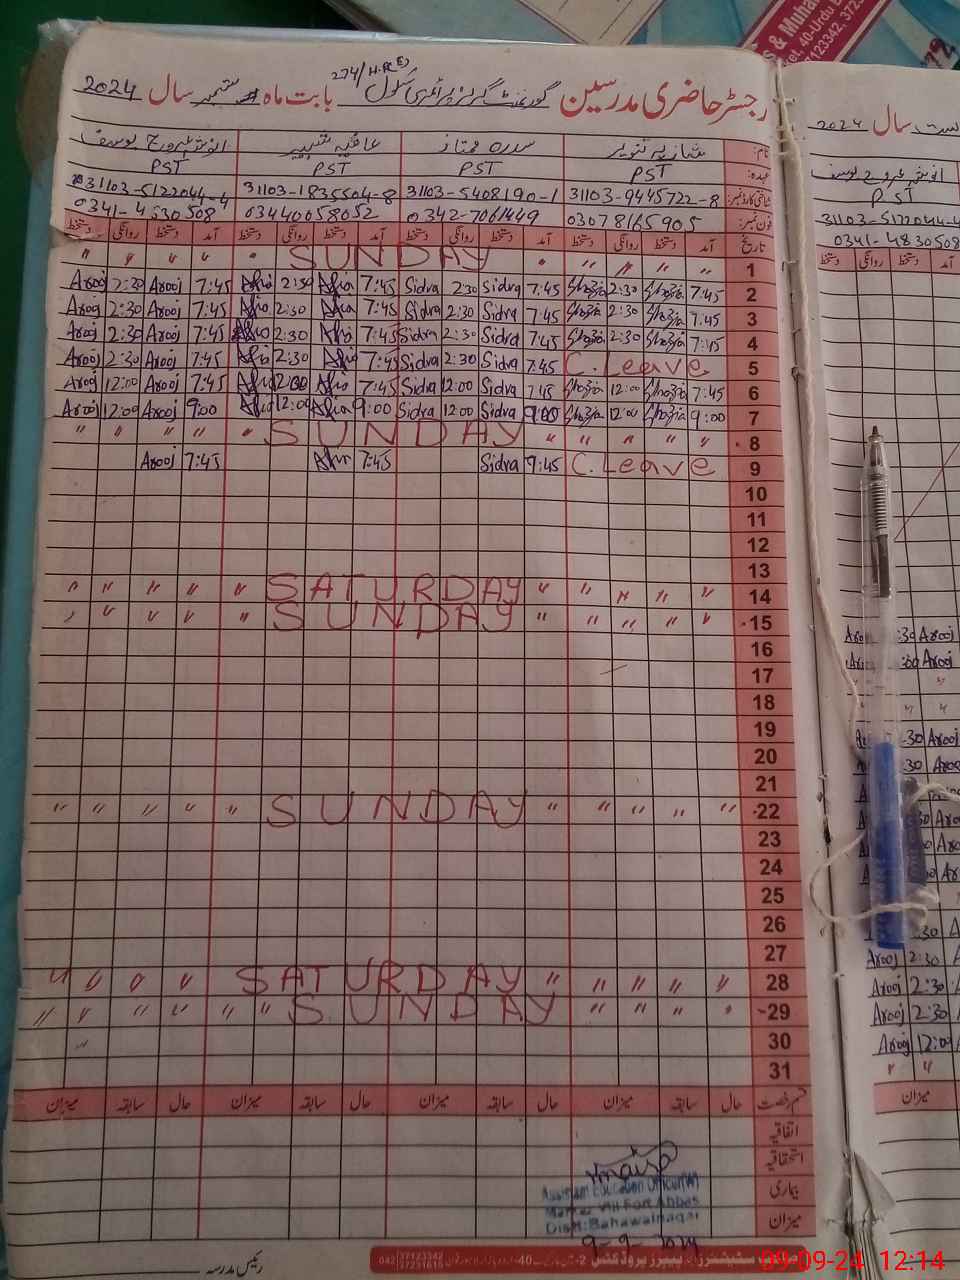 رجسٹر حاضری مدرسین گورنمنٹ گرلز پرائمری سکول 274/H.R(E) بابت ماہ ستمبر سال 2024
نام: شازیہ تنویر سدرہ ممتاز عافیہ شبیر
عہدہ: PST PST PST PST
شناختی کارڈ نمبر: 31103-9445722-8 31103-5408190-1 31103-1835504-8 31103-5122044-4
فون نمبر: 03078165905 0342-7061449 03440058052 0341-4830508
تاریخ آمد دستخط روانگی دستخط آمد دستخط روانگی دستخط آمد دستخط روانگی دستخط آمد دستخط روانگی دستخط
" " " " " SUNDAY " " " " " 1
Arooj 2:30 Arooj 7:45 Afia 2:30 Afia 7:45 Sidra 2:30 Sidra 7:45 Shazia 2:30 Shazia 7:45 2
Arooj 2:30 Arooj 7:45 Afia 2:30 Afia 7:45 Sidra 2:30 Sidra 7:45 Shazia 2:30 Shazia 7:45 3
Arooj 2:30 Arooj 7:45 Afia 2:30 Afia 7:45 Sidra 2:30 Sidra 7:45 Shazia 2:30 Shazia 7:45 4
Arooj 2:30 Arooj 7:45 Afia 2:30 Afia 7:45 Sidra 2:30 Sidra 7:45 C.Leave 5
Arooj 12:00 Arooj 7:45 Afia 12:00 Afia 7:45 Sidra 12:00 Sidra 7:45 Shazia 12:00 Shazia 7:45 6
Arooj 12:00 Arooj 9:00 Afia 12:00 Afia 9:00 Sidra 12:00 Sidra 9:00 Shazia 12:00 Shazia 9:00 7
" " " " " SUNDAY " " " " " 8
Arooj 7:45 Afia 7:45 Sidra 9:45 C.Leave 9
10
11
12
13
" " " " " SATURDAY " " " " " 14
" " " " " SUNDAY " " " " " 15
16
17
18
19
20
21
" " " " " SUNDAY " " " " " 22
23
24
25
26
27
" " " " SATURDAY " " " " " 28
" " " " " " SUNDAY " " " " 29
30
31
قسم رخصت حال سابقہ میزان حال سابقہ میزان حال سابقہ میزان حال سابقہ میزان
اتفاقیہ
استحقاقیہ
بیماری
میزان
Assistant Education Officer(W)
Fort Abbas
Distt: Bahawalnagar
9-9-2024
رئیس مدرسہ
042 37123342 37231615
سال 2024
PST
31103-5122044-4
0341-4830508
آمد دستخط روانگی دستخط
میزان
09-09-24 12:14